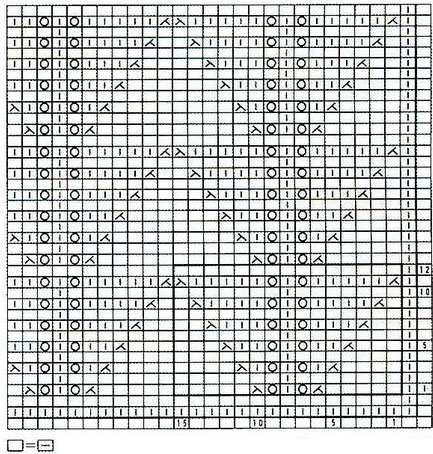 12
10
5
1
15 10 5 1
□=⊟